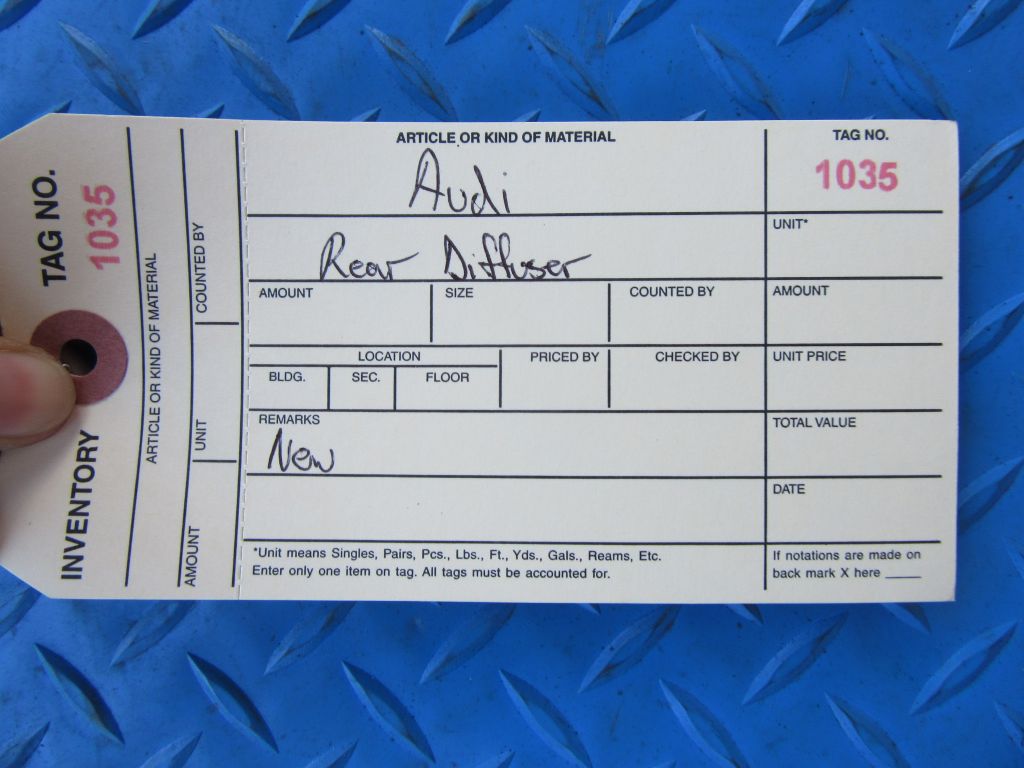 INVENTORY TAG NO.
1035
ARTICLE OR KIND OF MATERIAL
AMOUNT UNIT COUNTED BY
ARTICLE OR KIND OF MATERIAL
Audi
Rear Diffuser
TAG NO.
1035
UNIT*
AMOUNT SIZE COUNTED BY AMOUNT
LOCATION PRICED BY CHECKED BY UNIT PRICE
BLDG. SEC. FLOOR
REMARKS TOTAL VALUE
New
DATE
*Unit means Singles, Pairs, Pcs., Lbs., Ft., Yds., Gals., Reams, Etc.
Enter only one item on tag. All tags must be accounted for.
If notations are made on
back mark X here ____